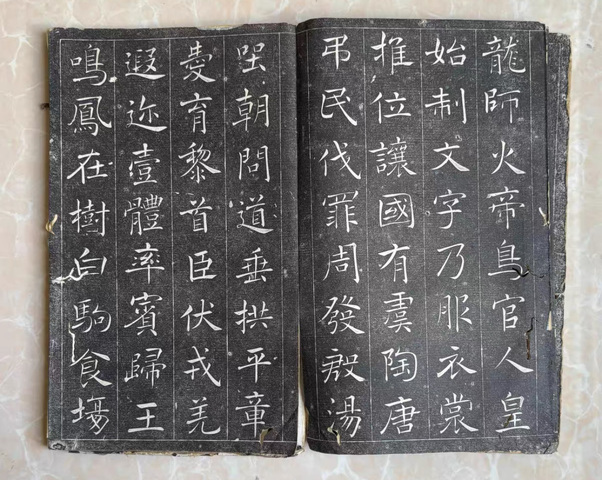 龍師火帝鳥官人皇
始制文字乃服衣裳
推位讓國有虞陶唐
弔民伐罪周發殷湯
坐朝問道垂拱平章
愛育黎首臣伏戎羌
遐迩壹體率賓歸王
鳴鳳在樹白駒食場